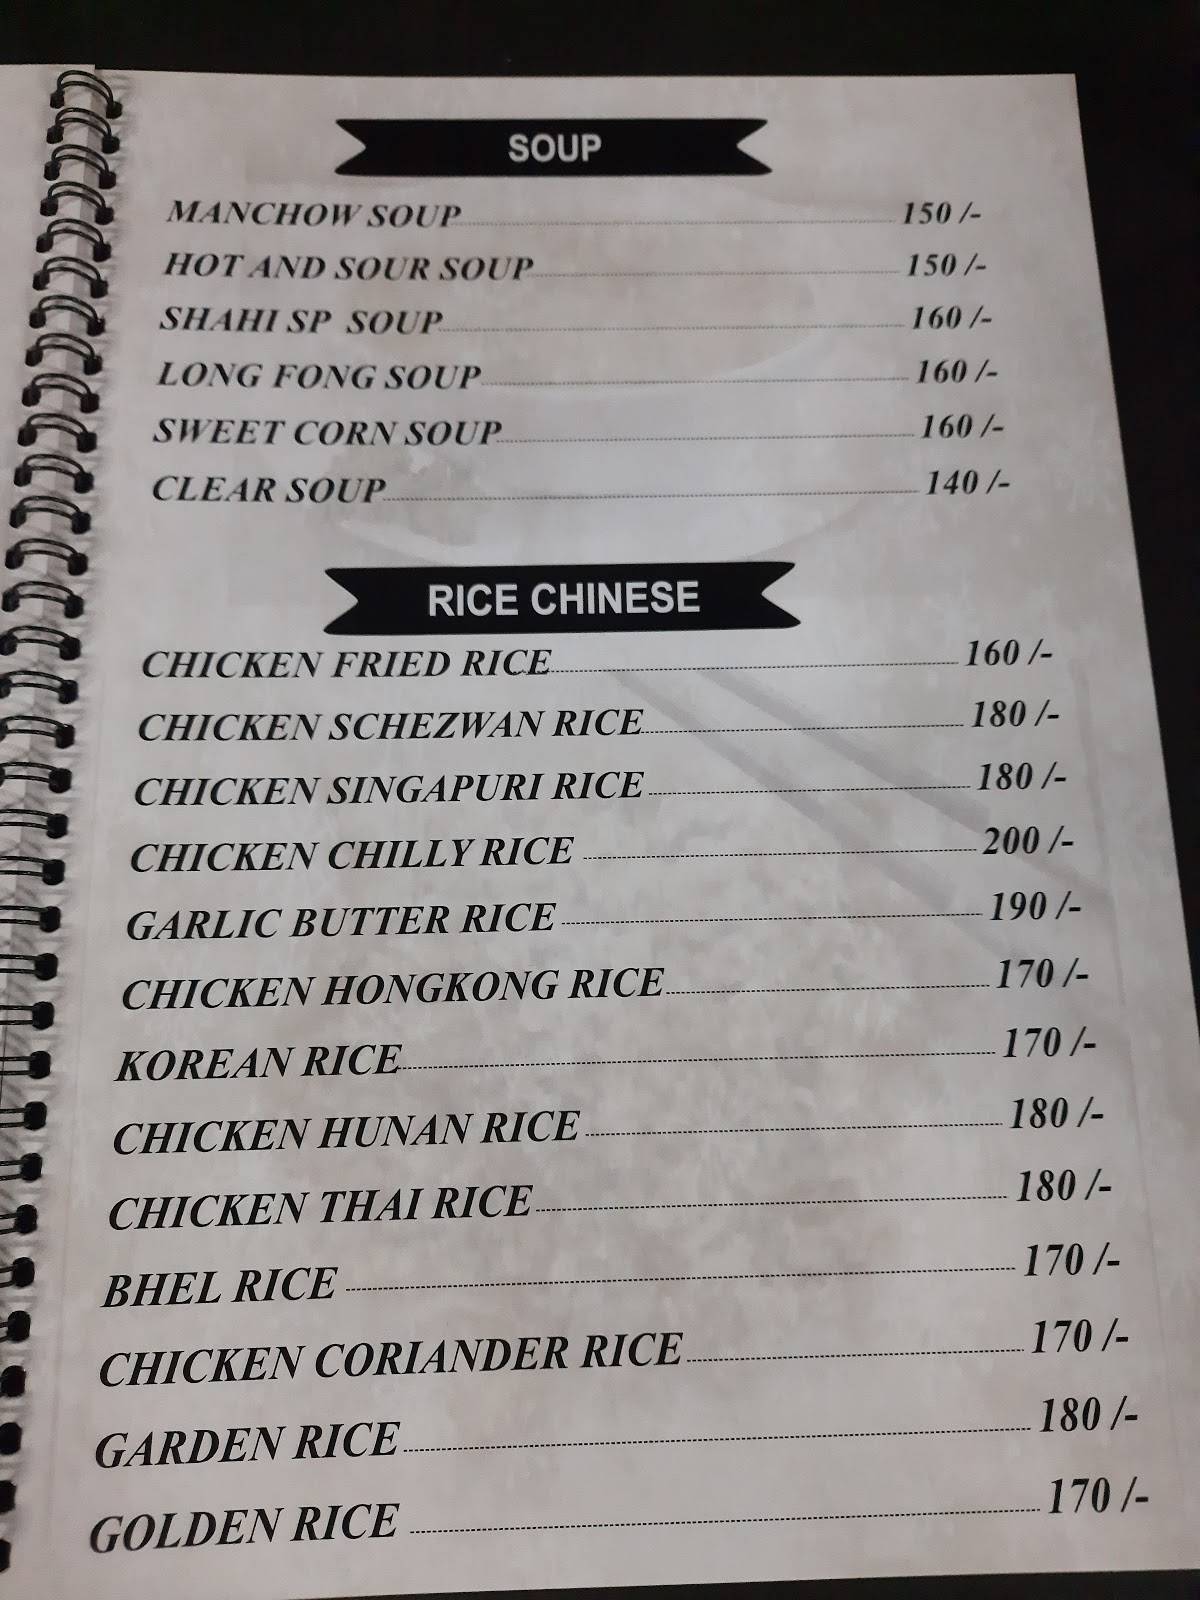 SOUP
MANCHOW SOUP 150 /-
HOT AND SOUR SOUP 150 /-
SHAHI SP SOUP 160 /-
LONG FONG SOUP 160 /-
SWEET CORN SOUP 160 /-
CLEAR SOUP 140 /-
RICE CHINESE
CHICKEN FRIED RICE 160 /-
CHICKEN SCHEZWAN RICE 180 /-
CHICKEN SINGAPURI RICE 180 /-
CHICKEN CHILLY RICE 200 /-
GARLIC BUTTER RICE 190 /-
CHICKEN HONGKONG RICE 170 /-
KOREAN RICE 170 /-
CHICKEN HUNAN RICE 180 /-
CHICKEN THAI RICE 180 /-
BHEL RICE 170 /-
CHICKEN CORIANDER RICE 170 /-
GARDEN RICE 180 /-
GOLDEN RICE 170 /-